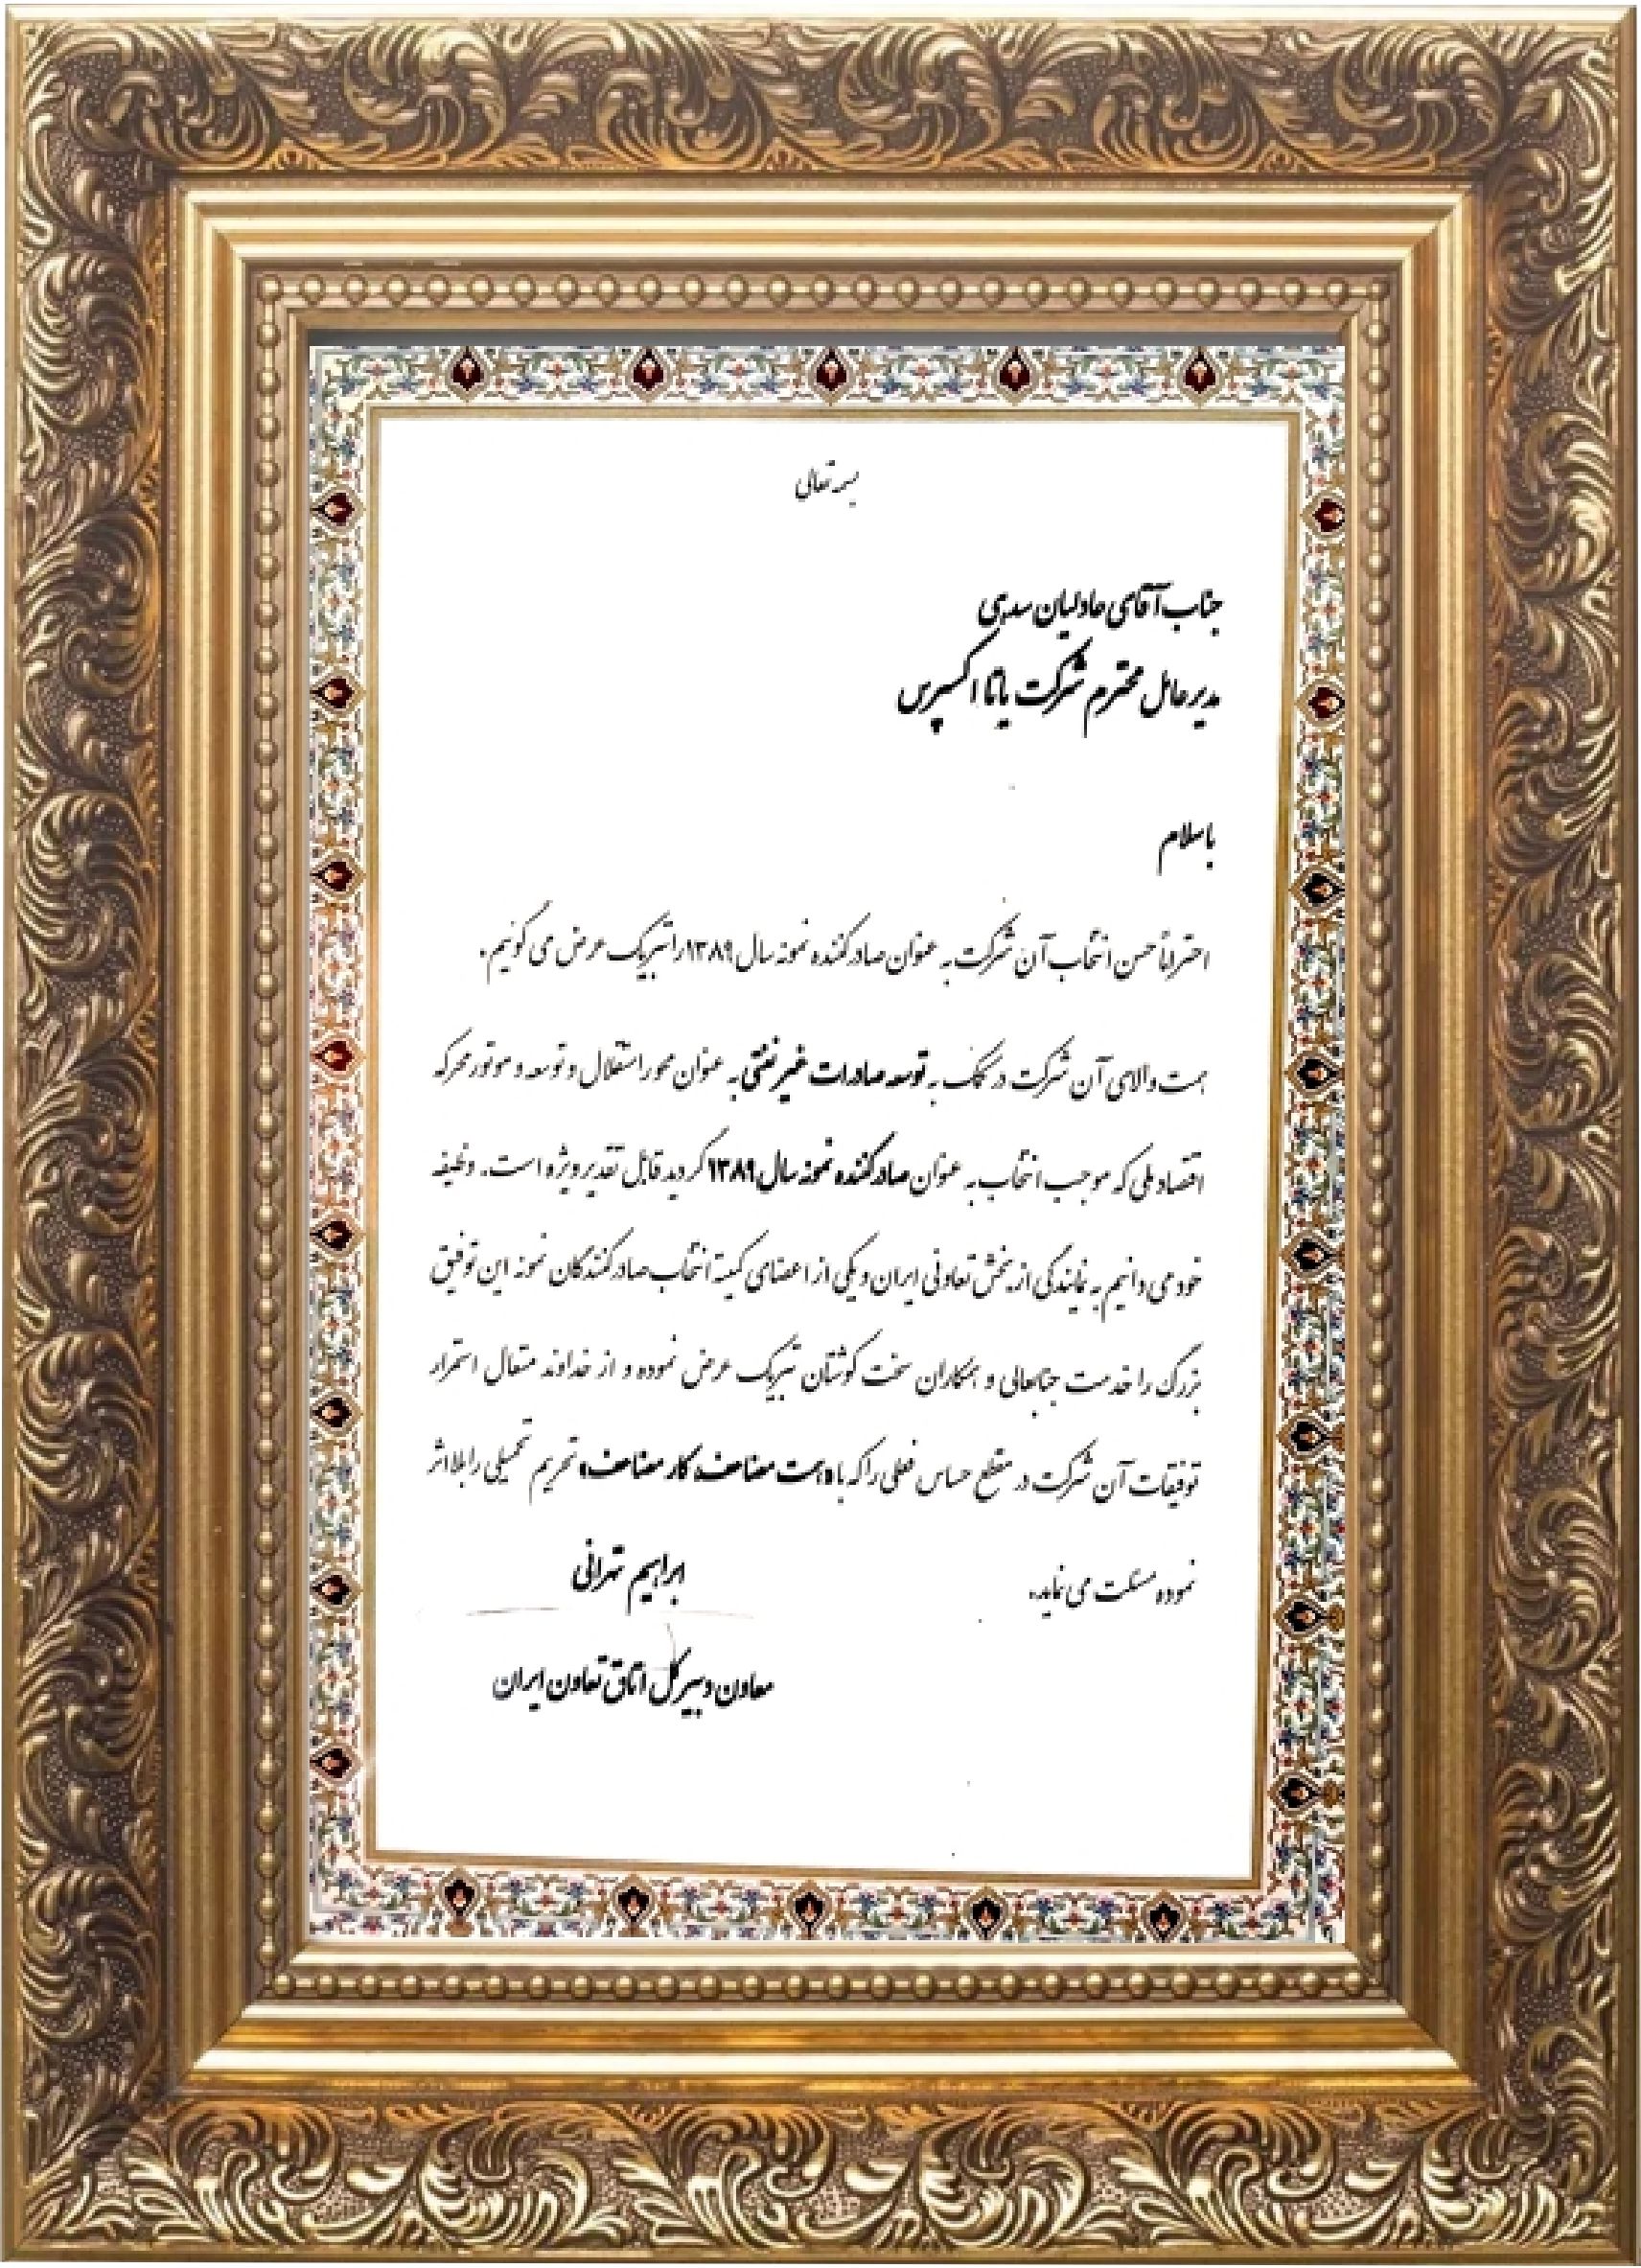 بسمه تعالی
جناب آقای عادلیان سدی
مدیر عامل محترم شرکت یاتا اکسپرس
با سلام
احتراماً حسن انتخاب آن شرکت به عنوان صادر کننده نمونه سال ۱۳۸۹ را تبریک عرض می گوئیم.
همت والای آن شرکت در کمک به توسعه صادرات غیر نفتی به عنوان محور استقلال و توسعه و موتور محرکه
اقتصاد ملی که موجب انتخاب به عنوان صادر کننده نمونه سال ۱۳۸۹ گردید قابل تقدیر ویژه است. وظیفه
خود می دانیم به نمایندگی از بخش تعاونی ایران و یکی از اعضای کمیته انتخاب صادرکنندگان نمونه این توفیق
بزرگ را خدمت جنابعالی و همکاران سخت کوشتان تبریک عرض نموده و از خداوند متعال استمرار
توفیقات آن شرکت در مقطع حساس فعلی را که با «همت مضاعف، کار مضاعف» تحریم تحمیلی را بلا اثر
نموده مسئلت می نماید.
ابراهیم تهرانی
معاون دبیرکل اتاق تعاون ایران